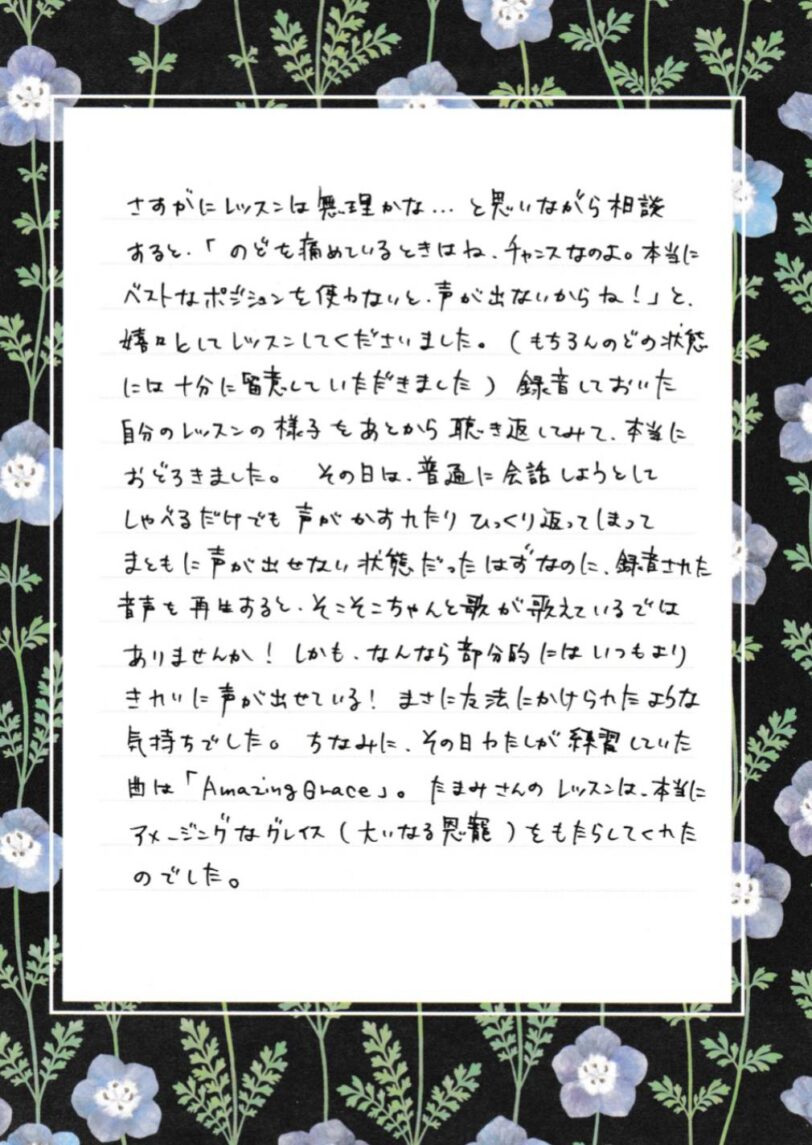 さすがにレッスンは無理かな…と思いながら相談
すると、「のどを痛めているときはね、チャンスなのよ。本当に
ベストなポジションを使わないと、声が出ないからね！」と、
嬉々としてレッスンしてくださいました。（もちろんのどの状態
には十分に留意していただきました）録音しておいた
自分のレッスンの様子をあとから聴き返してみて、本当に
おどろきました。 その日は、普通に会話しようとして
しゃべるだけでも声がかすれたりひっくり返ってしまって
まともに声が出せない状態だったはずなのに、録音された
音声を再生すると、そこそこちゃんと歌が歌えているでは
ありませんか！しかも、なんなら部分的にはいつもより
きれいに声が出せている！まさに左法にかけられたような
気持ちでした。ちなみに、その日わたしが練習していた
曲は「Amazing Grace」。たまみさんのレッスンは、本当に
アメージングなグレイス（大いなる恩寵）をもたらしてくれた
のでした。